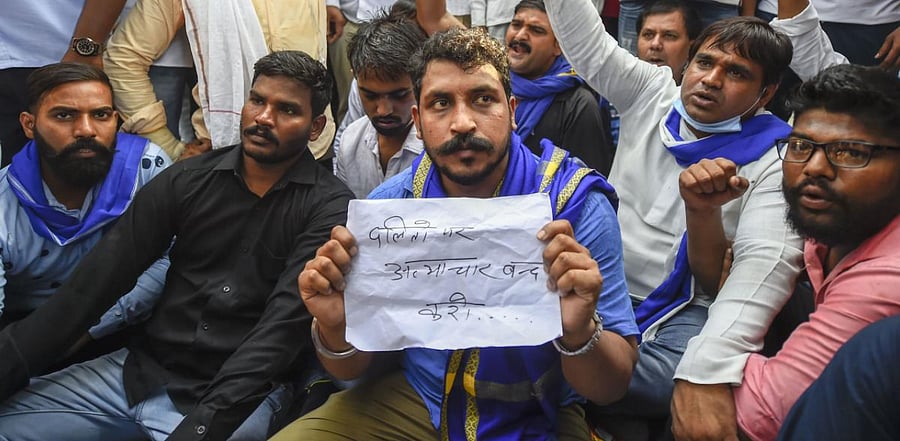 दलितों पर
अत्याचार बन्द
करो.....